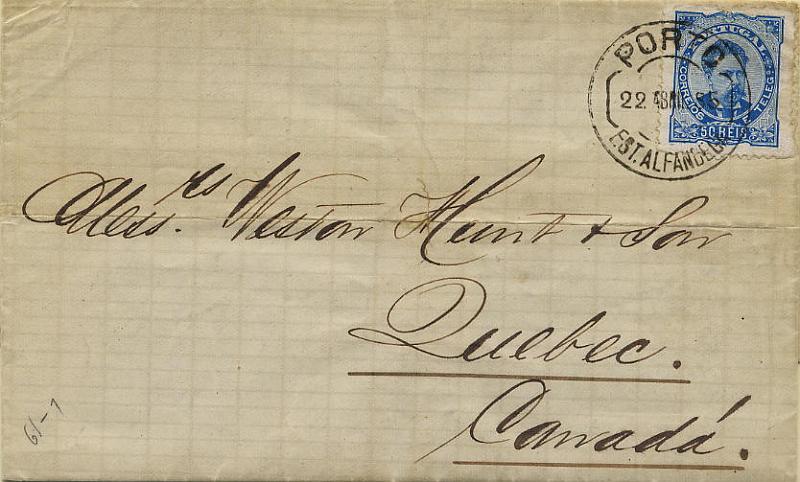 PORTO
22 ABRIL 85
EST. ALFANDEGA
PORTUGAL
CORREIOS E TELEG
50 REIS
Mess.rs Weston Hunt & Son
Quebec.
Canadá.
61-1